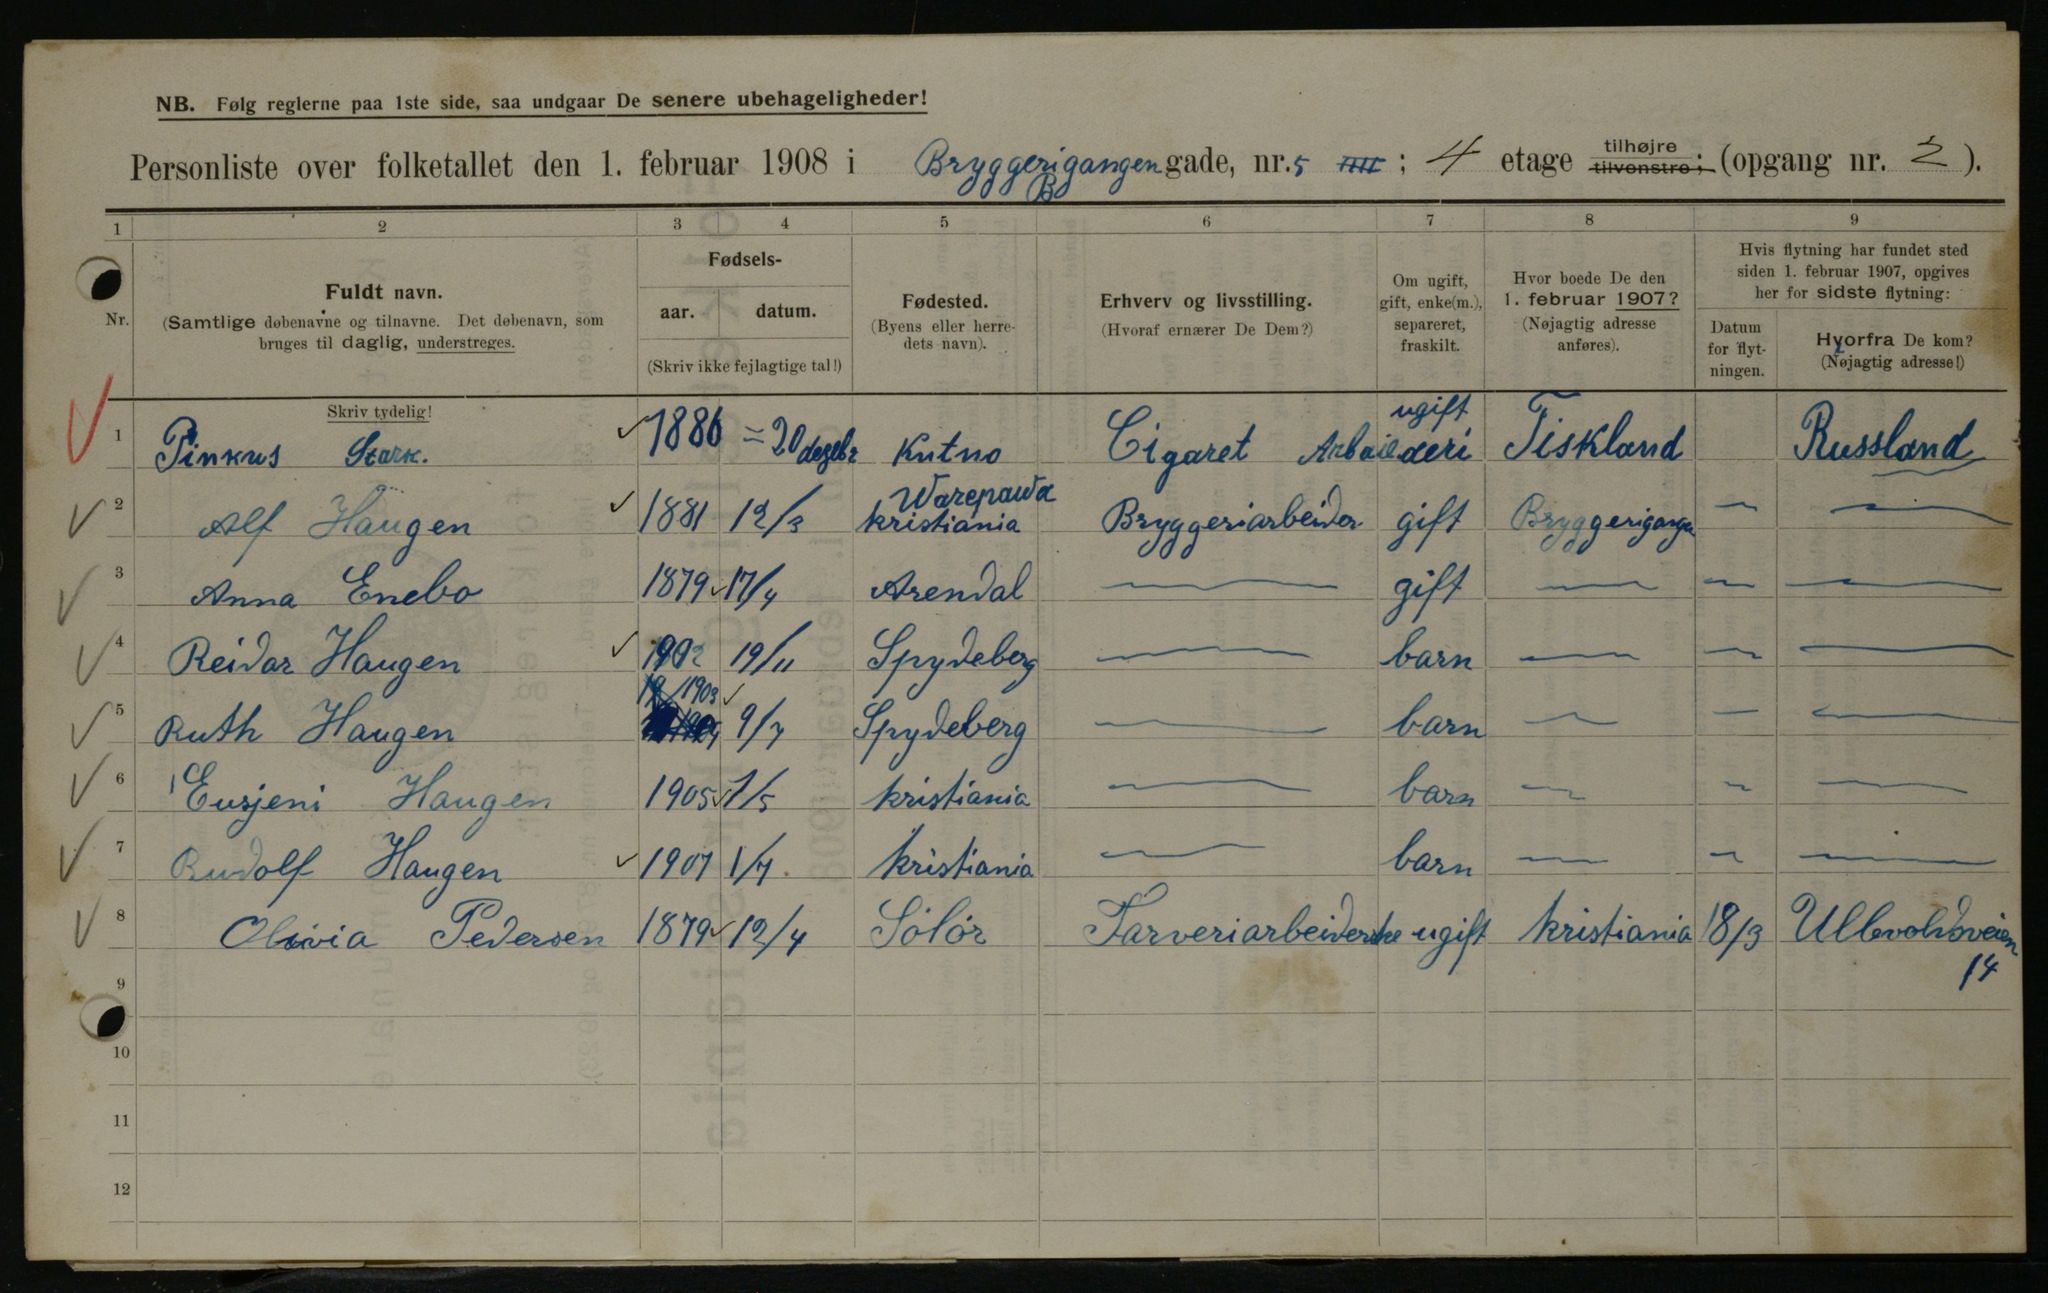 NB. Følg reglerne paa 1ste side, saa undgaar De senere ubehageligheder!
Personliste over folketallet den 1. februar 1908 i Bryggerigangen gade, nr. 5 B ; 4 etage tilhøjre tilvenstre; (opgang nr. 2 ).
1 2 3 4 5 6 7 8 9
Nr.
Fuldt navn.
(Samtlige døbenavne og tilnavne. Det døbenavn, som
bruges til daglig, understreges.
Skriv tydelig!
Fødsels-
aar. datum.
(Skriv ikke fejlagtige tal!)
Fødested.
(Byens eller herre-
dets navn).
Erhverv og livsstilling.
(Hvoraf ernærer De Dem?)
Om ugift,
gift, enke(m.),
separeret,
fraskilt.
Hvor boede De den
1. februar 1907?
(Nøjagtig adresse
anføres).
Hvis flytning har fundet sted
siden 1. februar 1907, opgives
her for sidste flytning:
Datum
for flyt-
ningen.
Hvorfra De kom?
(Nøjagtig adresse!)
1 Pinkus Stark. 1886 = 20 Kutno Cigaret ugift Tiskland Russland
Warepawa
2 Alf Haugen 1881 12/3 Kristiania Bryggeriarbeider gift Bryggerigangen — —
3 Anna Enebo 1879 17/4 Arendal — gift — — —
4 Reidar Haugen 1902 19/11 Spydeberg — barn — — —
5 Ruth Haugen 1903 9/7 Spydeberg — barn — — —
6 Eusjeni Haugen 1905 7/5 Kristiania — barn — — —
7 Rudolf Haugen 1907 1/7 Kristiania — barn — — —
8 Olivia Pedersen 1879 12/4 Solør Farveriarbeiderske ugift Kristiania 18/3 Ullevoldsveien
14
9
10
11
12